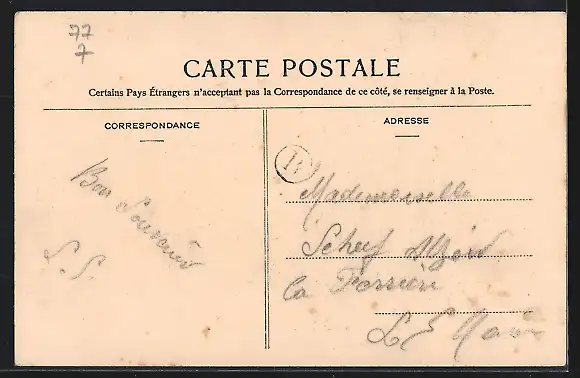 77
7
CARTE POSTALE
Certains Pays Étrangers n'acceptant pas la Correspondance de ce côté, se renseigner à la Poste.
CORRESPONDANCE
Bon Souvenir
L. S.
ADRESSE
Mademoiselle
La
L E